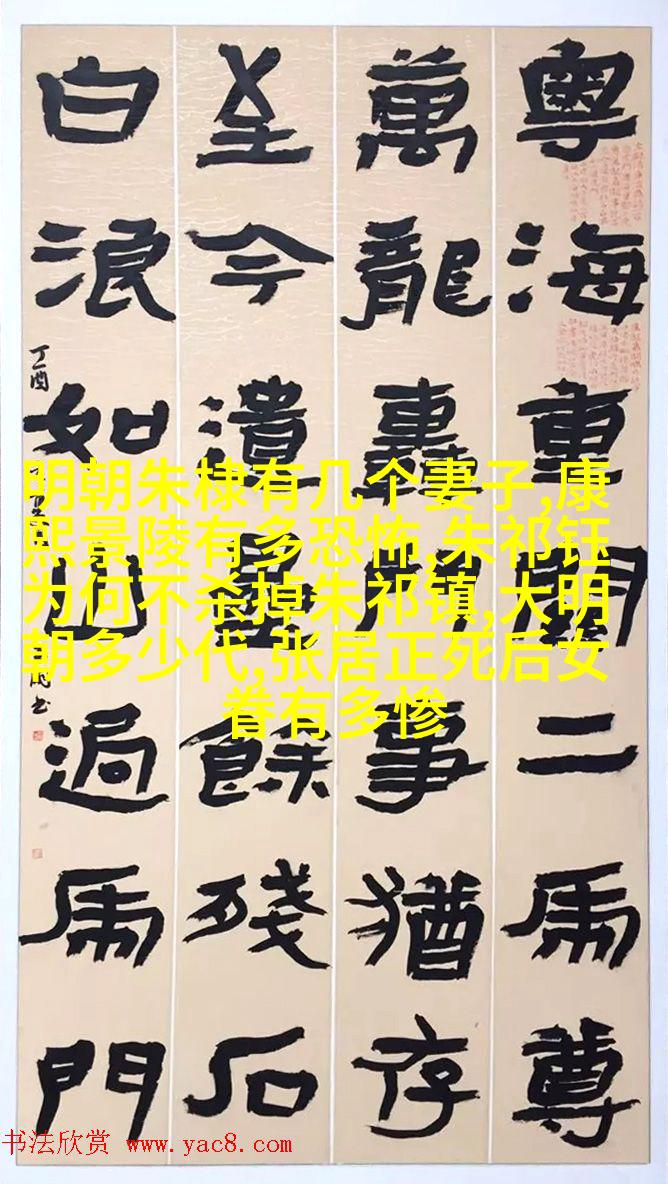 粵海重關二虎尊
萬龍轟鬥事猶存
至今潰壘餘殘石
白浪如山過虎門
丁酉
书
明朝朱棣有几个妻子,康
熙景陵有多恐怖,朱祁钰
为何不杀掉朱祁镇,大明
朝多少代,张居正死后女
眷有多惨
书法欣赏 www.yac8.com